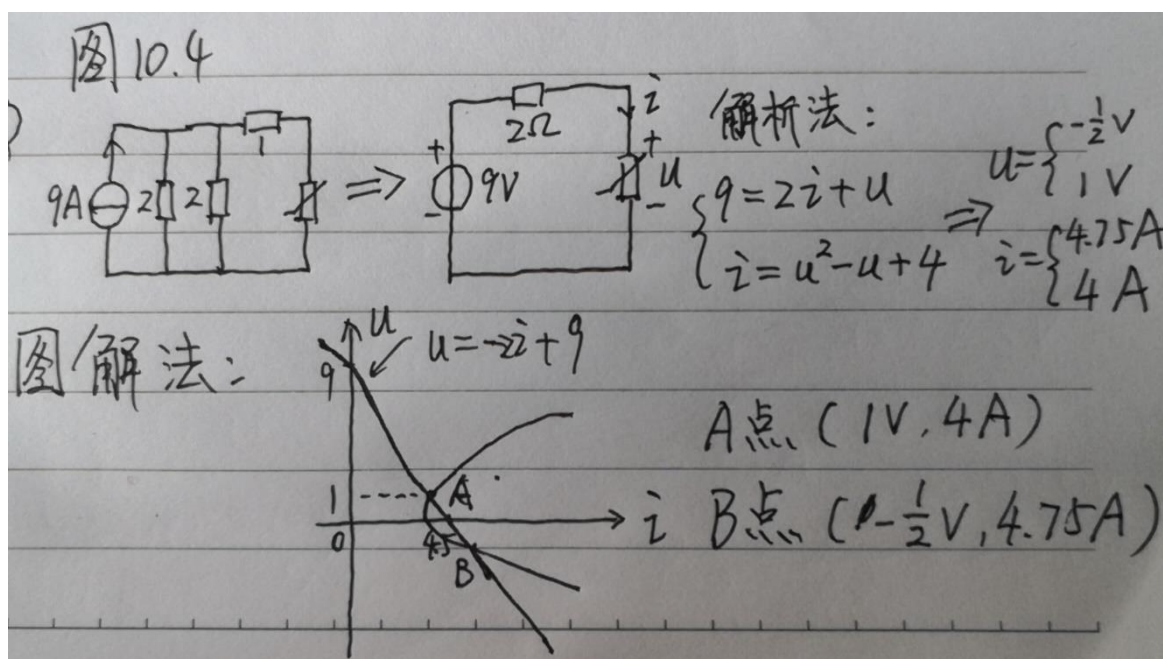 图10.4
9A 2 2 1
⇒
+ 9V -
2Ω
i
+ u -
解析法:
{9=2i+u
i=u²-u+4
⇒
u={-1/2V
1V
i={4.75A
4A
图解法:
u
u=-2i+9
9
1
A
0
4.5
B
i
A点(1V,4A)
B点(-1/2V,4.75A)